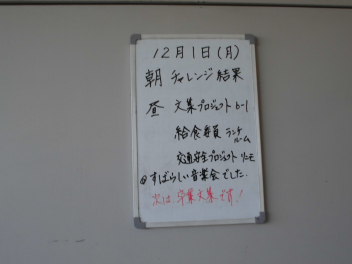 12月1日(月)
朝 チャレンジ結果
昼 文集プロジェクト 6-1
給食委員 ランチ
ルーム
交通安全プロジェクト
◎すばらしい音楽会でした.
次は、卒業文集です!